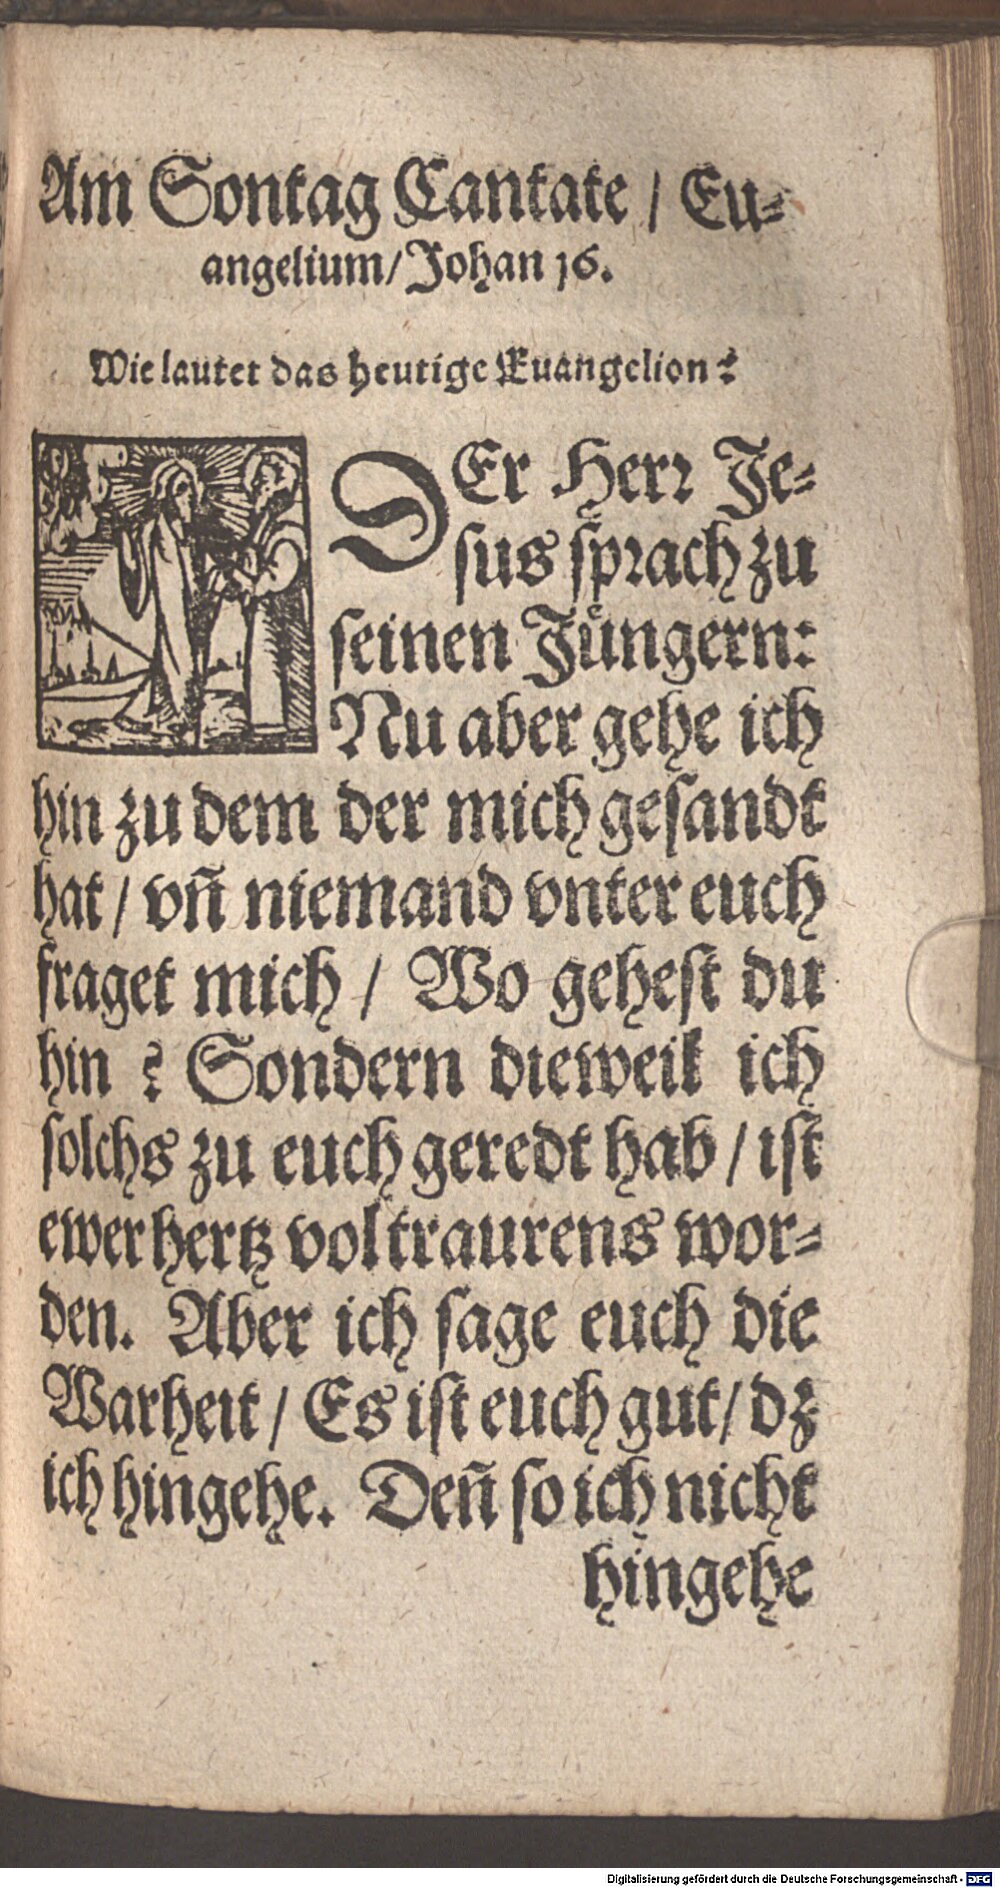 Am Sontag Cantate / Eu⸗
angelium/ Johan 16.
Wie lautet das heutige Euangelion?
DEr Herr Je⸗
sus sprach zu
seinen Jüngern:
Nu aber gehe ich
hin zu dem der mich gesandt
hat / vñ niemand vnter euch
fraget mich / Wo gehest du
hin ? Sondern dieweil ich
solchs zu euch geredt hab / ist
ewer hertz vol traurens wor⸗
den. Aber ich sage euch die
Warheit / Es ist euch gut / dz
ich hingehe. Deñ so ich nicht
hingehe
Digitalisierung gefördert durch die Deutsche Forschungsgemeinschaft - DFG